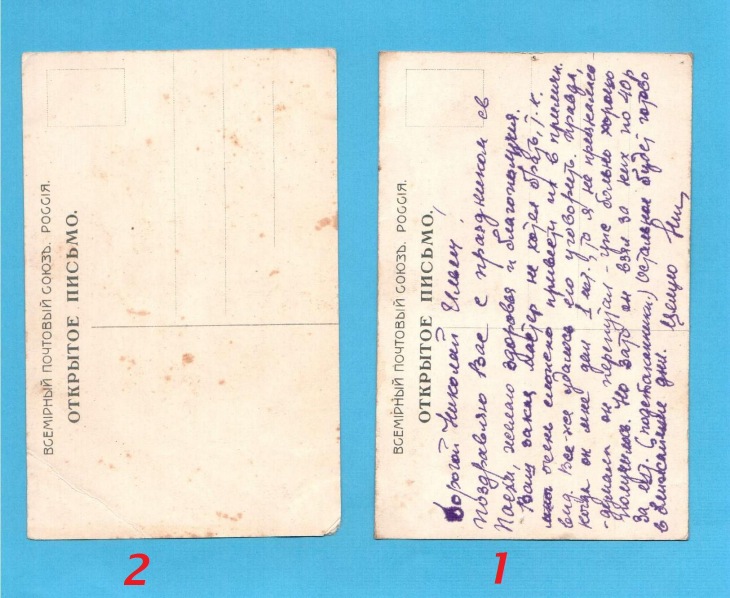 ВСЕМІРНЫЙ ПОЧТОВЫЙ СОЮЗЪ. РОССІЯ.
ОТКРЫТОЕ ПИСЬМО.
2
ВСЕМІРНЫЙ ПОЧТОВЫЙ СОЮЗЪ. РОССІЯ.
ОТКРЫТОЕ ПИСЬМО.
Дорогой Николай Ильич!
поздравляю Вас с праздником св
Пасхи, желаю здоровья и благополучия.
Ваш заказ мастер не хотел брать, т. к.
очень сложно привести их в приличн.
вид. Все-же удалось его уговорить. Правда,
когда он мне дал 1 шт., то я не
думала он перепутал - уж больно хорошо
получилось. Но взял за них по 40р
за шт. (подстаканники.) Остальные будет готово
в ближайшие дни.
1